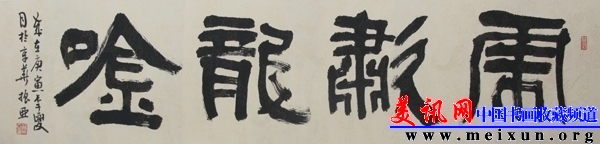 虎歗龍唫
歲在庚寅年夏
月於京華
美讯网 中国书画收藏频道
www.meixun.org